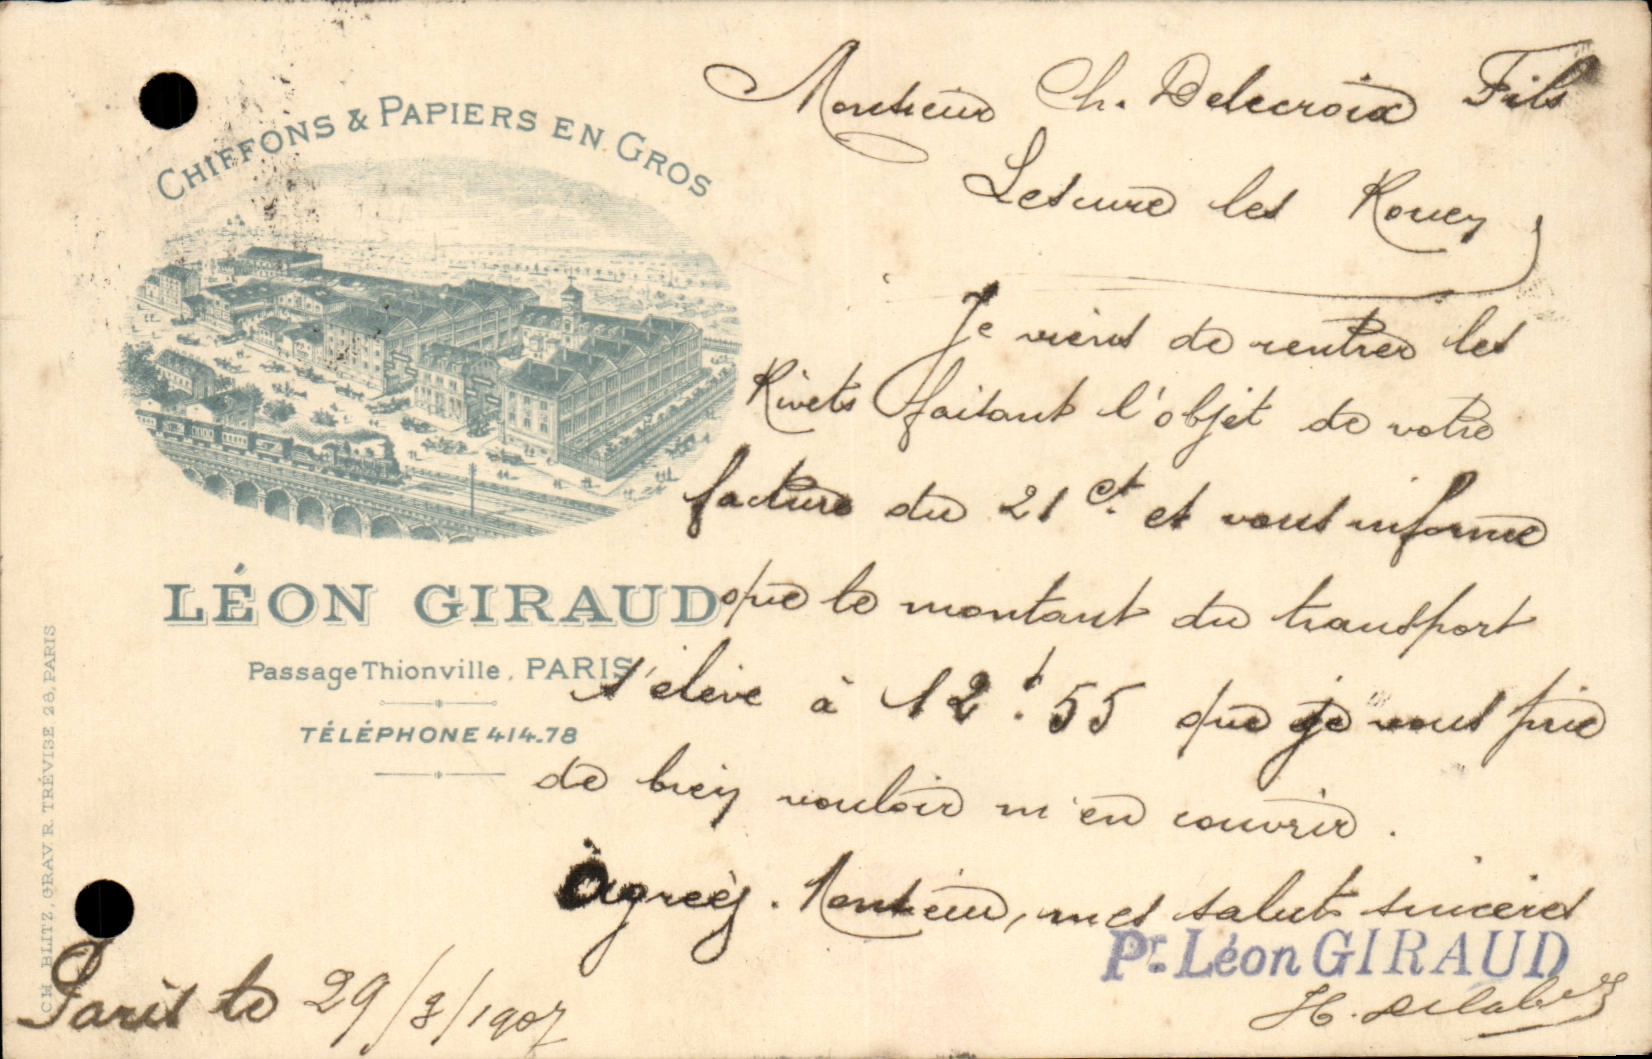 CHIFFONS & PAPIERS EN GROS
LÉON GIRAUD
Passage Thionville, PARIS
TÉLÉPHONE 414.78
CH. BLITZ, GRAV. R. TRÉVISE 28, PARIS
Monsieur Ch. Delecroix Fils
Lescure les Rouen
Je viens de rentrer les
Rivets faisant l'objet de votre
facture du 21 ct. et vous informe
que le montant du transport
s'élève à 12f.55 que je vous prie
de bien vouloir m'en couvrir.
Agréez. Monsieur, mes saluts sincères
Pr. Léon GIRAUD
Paris le 29/8/1907